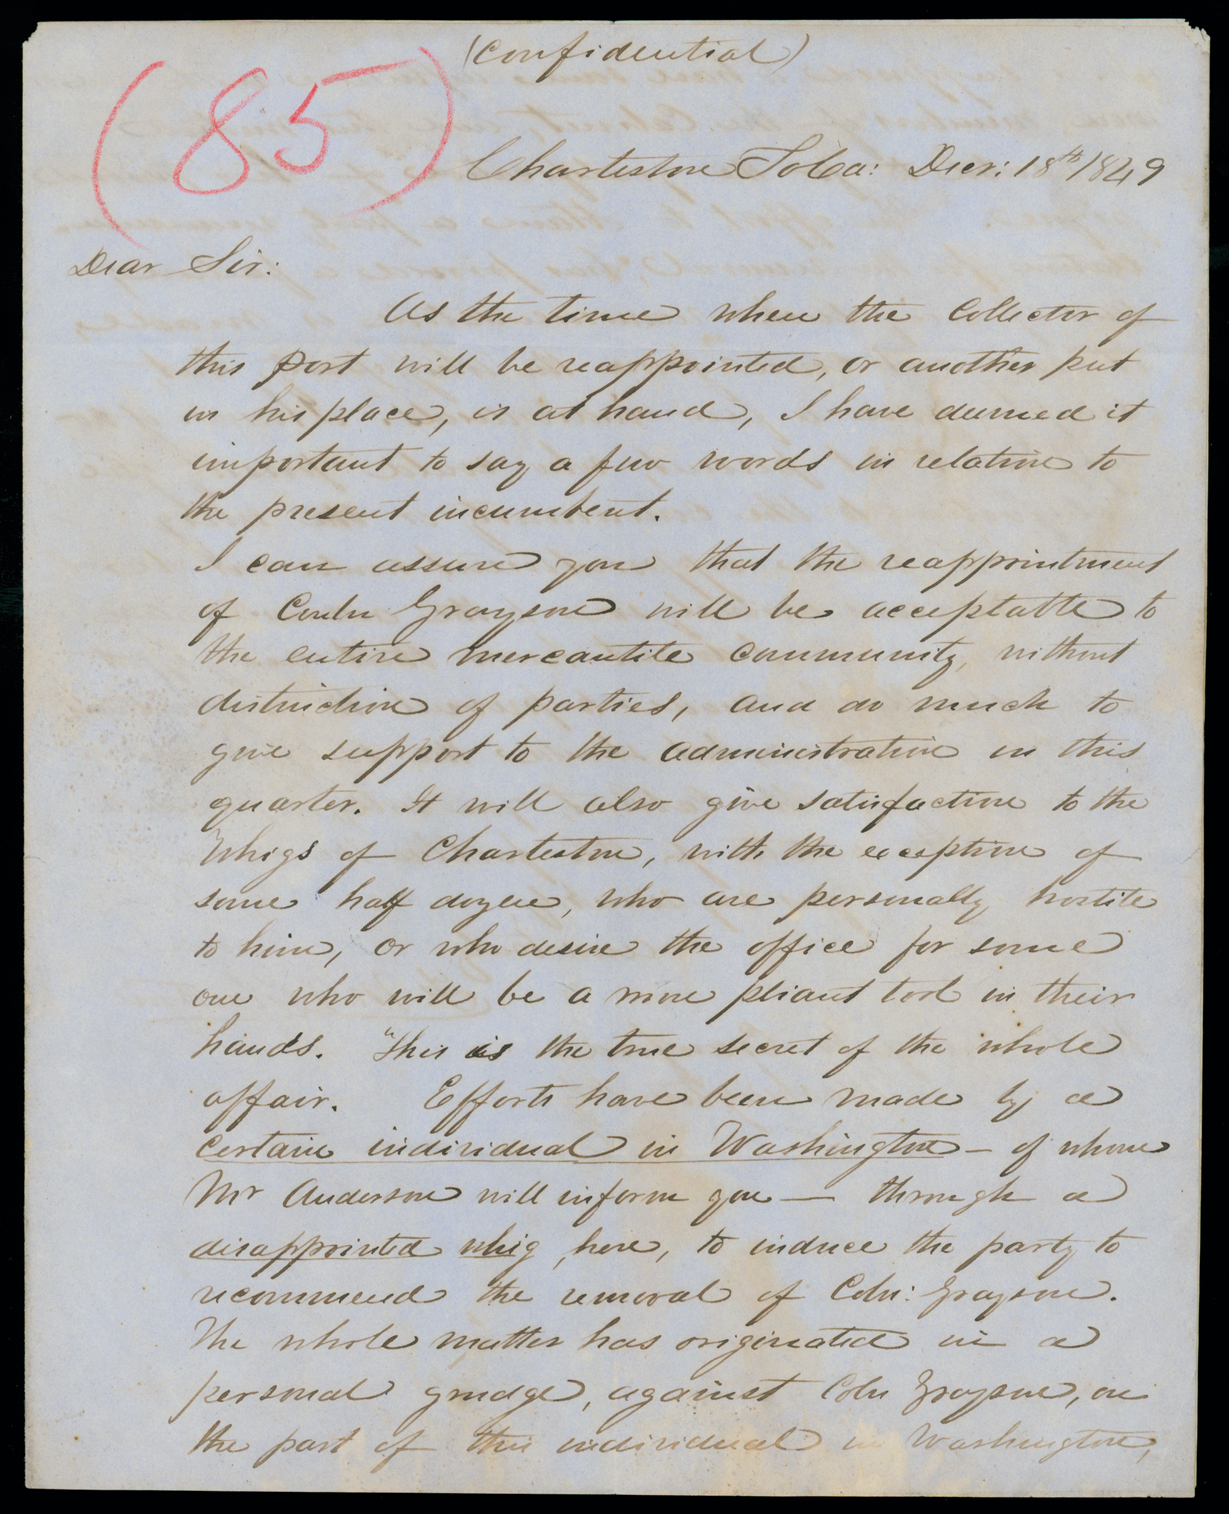 (Confidential)
(85)
Charleston So Ca: Decr: 18th 1849
Dear Sir:
As the time when the Collector of
this Port will be reappointed, or another put
in his place, is at hand, I have deemed it
important to say a few words in relation to
the present incumbent.
I can assure you that the reappointment
of Grayson will be acceptable to
the entire mercantile community, without
distinction of parties, and do much to
give support to the administration in this
quarter. It will also give satisfaction to the
Whigs of Charleston, with the exception of
some half dozen, who are personally hostile
to him, or who desire the office for some
one who will be a more pliant tool in their
hands. This is the true secret of the whole
affair. Efforts have been made by a
certain individual in Washington — of whom
Mr Anderson will inform you — through a
disappointed whig here, to induce the party to
recommend the removal of Coln: Grayson.
The whole matter has originated in a
personal grudge, against Coln Grayson, on
the part of this individual in Washington,